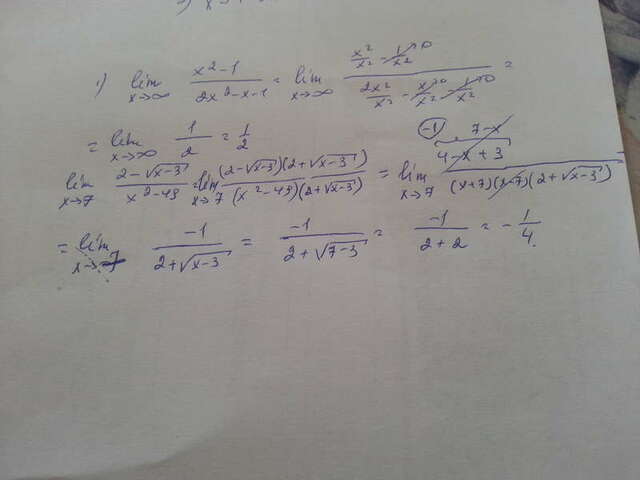 1) lim x→∞ (x²-1)/(2x²-x-1) = lim x→∞ (x²/x² - 1/x²→0)/(2x²/x² - x/x²→0 - 1/x²→0) =
= lim x→∞ 1/2 = 1/2
(-1) 7-x
4-x+3
lim x→7 (2-√x-3)/(x²-49) = lim x→7 (2-√x-3)(2+√x-3)/(x²-49)(2+√x-3) = lim x→7 (4-x+3)/(x+7)(x-7)(2+√x-3)
= lim x→7 -1/(2+√x-3) = -1/(2+√7-3) = -1/(2+2) = -1/4